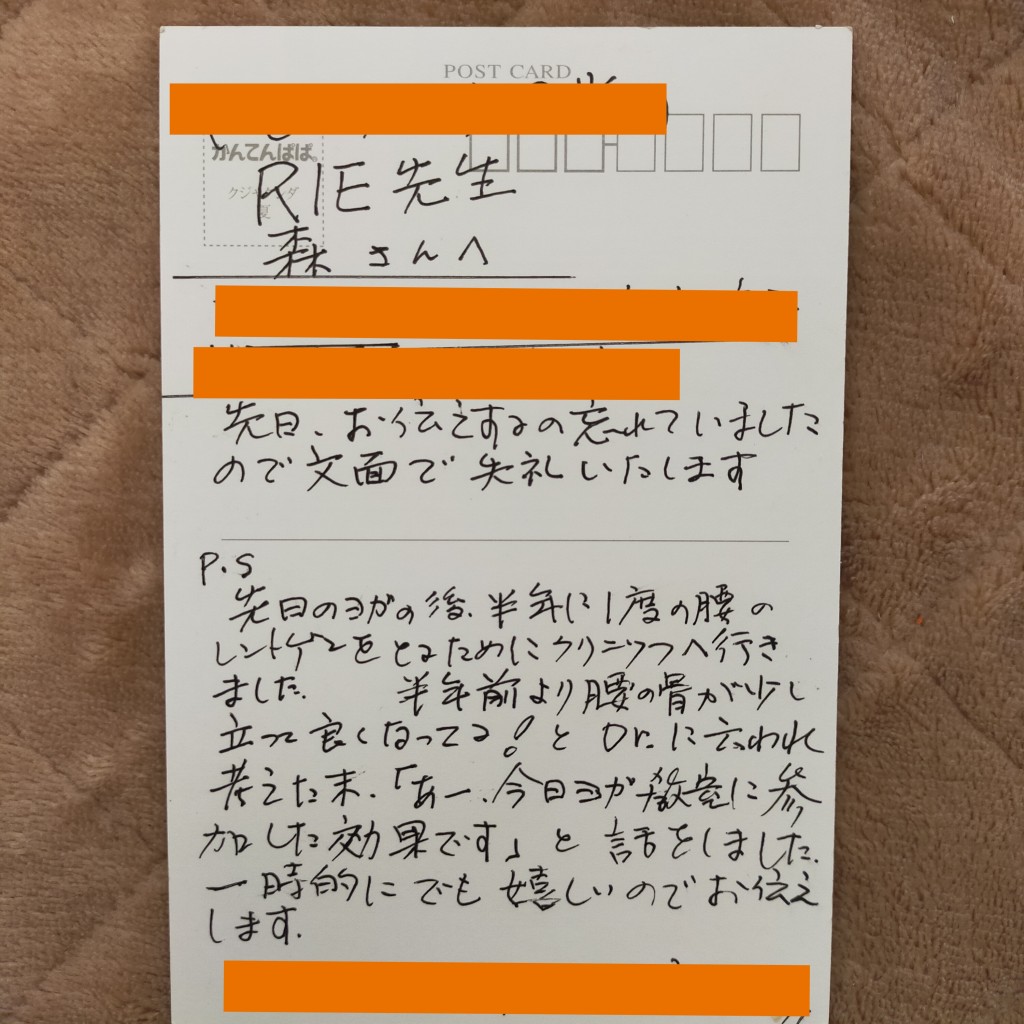 POST CARD
かんてんぱぱ®
RIE先生
森さんへ
先日、お伝えするの忘れていました
ので文面で失礼いたします
P.S
先日のヨガの後、半年に1度の腰の
レントゲンをとるためにクリニックへ行き
ました。 半年前より腰の骨が少し
立って良くなってる!と Dr.に言われ
考えた末、「あー、今日ヨガ教室に参
加した効果です」と話をしました。
一時的にでも嬉しいのでお伝え
します。